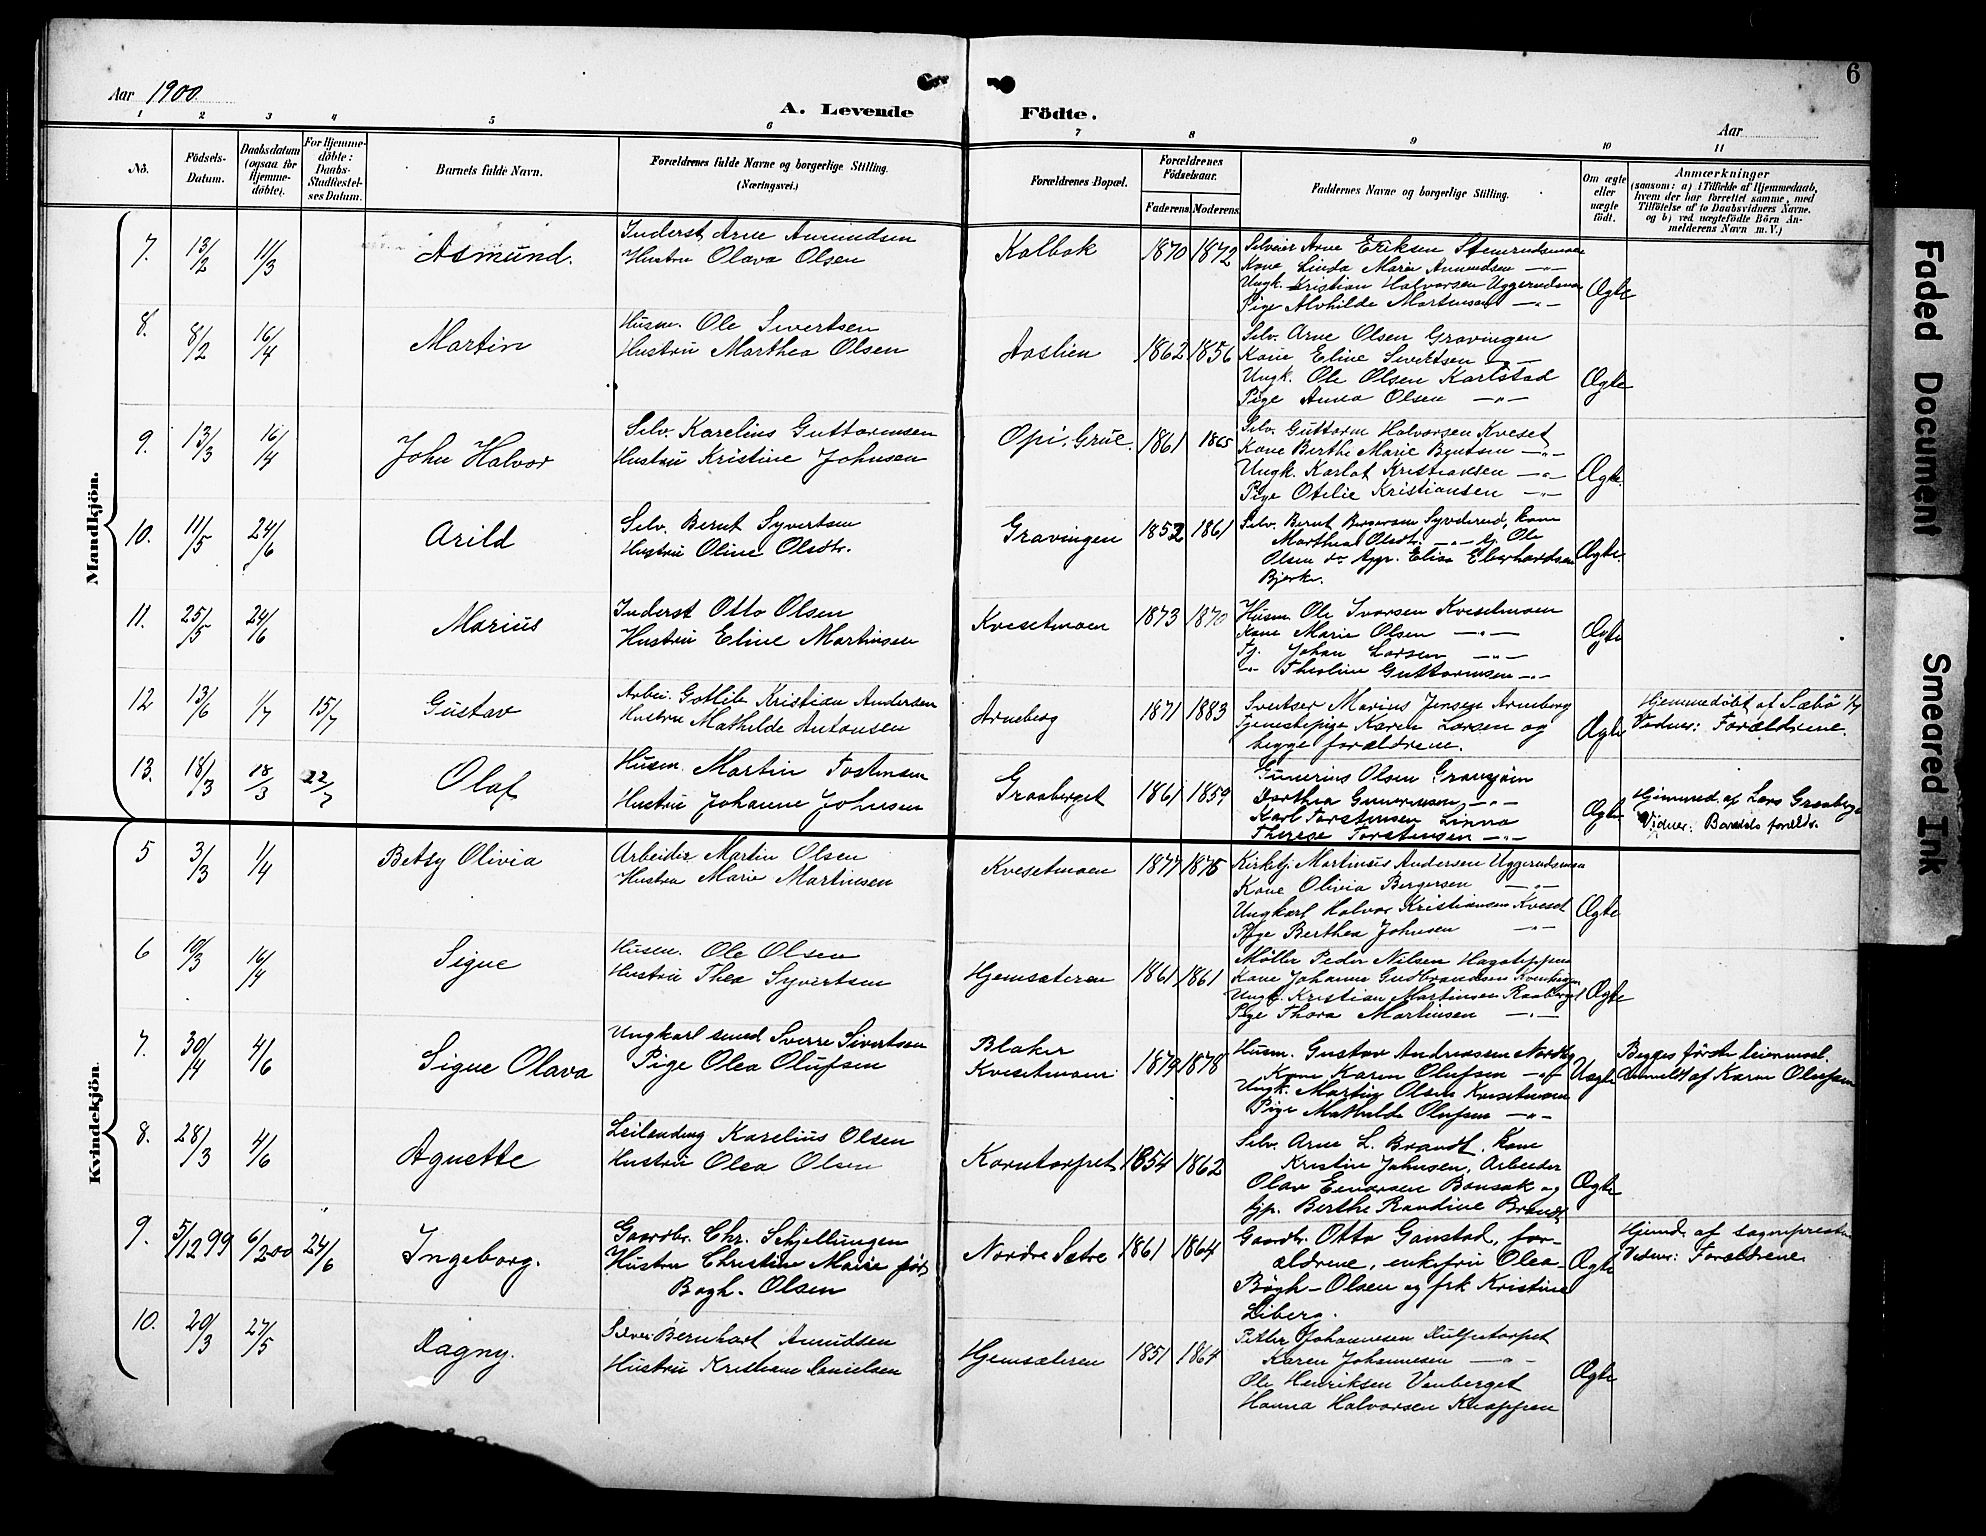 Aar 1900.
A. Levende Födte.
Aar
6
1 2 3 4 5 6 7 8 9 10 11
No.
Födsels-Datum.
Daabsdatum (ogsaa for Hjemme-döbte).
For Hjemme-döbte: Daabs-Stadfæstel-ses Datum.
Barnets fulde Navn.
Forældrenes fulde Navne og borgerlige Stilling. (Næringsvei.)
Forældrenes Bopæl.
Forældrenes Födselsaar.
Faderens. Moderens.
Faddernes Navne og borgerlige Stilling.
Om ægte eller uægte födt.
Anmærkninger
(saasom: a) i Tilfælde af Hjemmedaab, hvem der har forrettet samme, med Tilföielse af to Daabsvidners Navne. og b) ved uægtefödte Börn An-melderens Navn m. V.)
Mandkjön.
7. 13/2 11/3 Asmund.
Inderst Arne Amundsen
Hustru Olava Olsen
Kalbak 1870 1872
Selveier Arne Eriksen
Kone Linda Marie Amundsen -"-
Ungk. Kristian Halvorsen Uggerudsmoen
Pige Alvhilde Martinsen -"-
Ægte
8. 8/2 16/4 Martin
Husm. Ole Sivertsen
Hustru Marthea Olsen
Aaslien 1862 1856
Selv. Arne Olsen Gravingen
Kone Eline Sivertsen -"-
Ungk. Ole Olsen Karlstad
Pige Anna Olsen -"-
Ægte
9. 13/3 16/4 John Halvor
Selv. Karelius Guttormsen
Hustru Kristine Johnsen
Opi, Grue. 1861 1865
Selv. Guttorm Halvorsen Kveset
Kone Berthe Marie Bentsen -"-
Ungk. Karlot Kristiansen -"-
Pige Otelie Kristiansen -"-
Ægte.
10. 11/5 24/6 Arild
Selv. Bernt Syvertsen
Hustru Oline Olsdtr.
Gravingen 1852 1861
Selv. Bernt Bergersen Syverud, kone
Marthea Olsdtr. -"- Ole
Olsen do Elise Eberhardsen
Bjerke.
Ægte.
11. 25/5 24/6 Marius
Inderst Otto Olsen
Hustru Eline Martinsen
Kvesetmoen 1873 1870
Husm. Ole Ivarsen Kvesetmoen
Kone Marie Olsen -"-
Tj. Johan Larsen -"-
-"- Theoline Guttormsen -"-
Ægte
12 13/6 1/7 15/7 Gustav
Arbei. Gotlib Kristian Andersen
Hustru Mathilde Antonsen
Arneberg 1871 1883
Sveitser Marius Jensen Arneberg
Tjenestepige Karen Larsen og
begge forældrene.
Ægte
Hjemmedöbt af Sæbö 1/7
Vidner: Forældrene.
13. 18/3 18/3 22/7 Olaf
Husm. Martin Tostensen
Hustru Johanne Johnsen
Graaberget 1861 1859
Gunerius Olsen
Dorthea Gunerusen -"-
Karl Torstensen Linna
Therese Torstensen -"-
Ægte
Hjemmed. af Lars Graaberget
Vidner: Barnets foreldr.
Kvindekjön.
5 3/3 1/4 Betsy Olivia
Arbeider Martin Olsen
Hustru Marie Martinsen
Kvesetmoen 1877 1875
Kirketj. Martinus Andersen Uggerudsmoen
Kone Olivia Bergersen -"-
Ungkarl Halvor Kristiansen Kveset
Pige Berthea Johnsen -"-
Ægte
6 10/3 16/4 Signe
Husm. Ole Olsen
Hustru Thea Syvertsen
Hjemsæteren 1861 1861
Möller Peder Nilsen
Kone Johanne Gudbrandsen
Ungk. Kristian Martinsen Raaberget
Pige Thora Martinsen -"-
Ægte
7. 30/4 4/6 Signe Olava
Ungkarl smed Sverre Sivertsen
Pige Olea Olufsen
Blaker
Kvesetmoen 1879 1878
Husm. Gustav Andreassen Nordby
Kone Karen Olufsen -"-
Ungk. Martin Olsen Kvesetmoen
Pige Mathilde Olufsen -"-
Uægte
Begges förste leiermaal.
Anmeldt af Karen Olufsen
8. 28/3 4/6 Agnette
Leilending Karelius Olsen
Hustru Olea Olsen
Korntorpet 1854 1862
Selv. Arne L. Brandt, kone
Kristine Johnsen, Arbeider
Olav Einarsen Bansak og
tjp. Berthe Randine Brandt
Ægte
9. 5/12 99 6/2 00 24/6 Ingeborg.
Gaardbr. Chr. Schjellungen
Hustru Christine Marie født
Bögh-Olsen
Nordre Sætre 1861 1864
Gaardbr. Otto Ganstad, for-
ældrene, enkefru Olea
Bögh-Olsen og frk Kristine
Liberg.
Ægte
Hjemd. af sognepresten
Vidner: Forældrene
10. 20/3 27/5 Ragny.
Selvei Bernhart Amundsen
Hustru Kristiane Danielsen
Hjemsæteren 1851 1864
Petter Johannesen
Karen Johannesen -"-
Ole Henriksen Vanberget
Hanna Halvorsen Knappen
Ægte
Faded Document
Smeared Ink